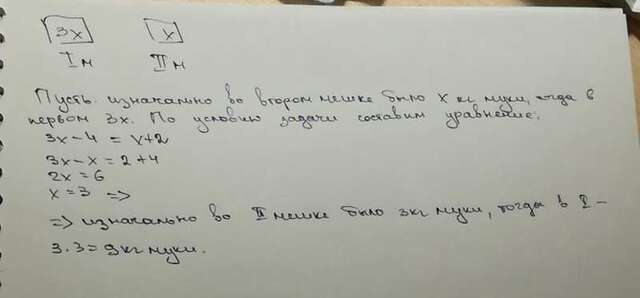 3x x
I м II м
Пусть изначально во втором мешке было x кг муки, тогда в
первом 3x. По условию задачи составим уравнение:
3x-4 = x+2
3x-x = 2+4
2x = 6
x = 3 =>
=> изначально во II мешке было 3кг муки, тогда в I -
3·3=9кг муки.